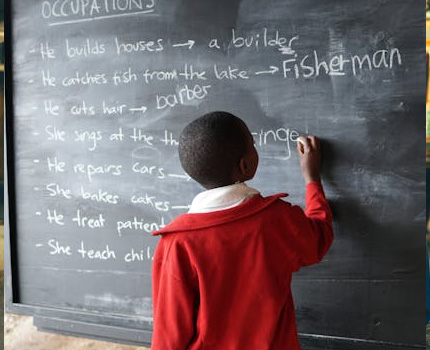 OCCUPATIONS
- He builds houses → a builder
- He catches fish from the lake → Fisherman
- He cuts hair → barber
- She sings at the th inge
- He repairs cars
- She bakes cakes
- He treat patient
- She teach chil